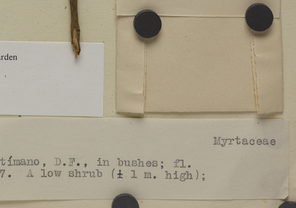 arden
Myrtaceae
tímano, D.F., in bushes; fl.
7. A low shrub (± 1 m. high);